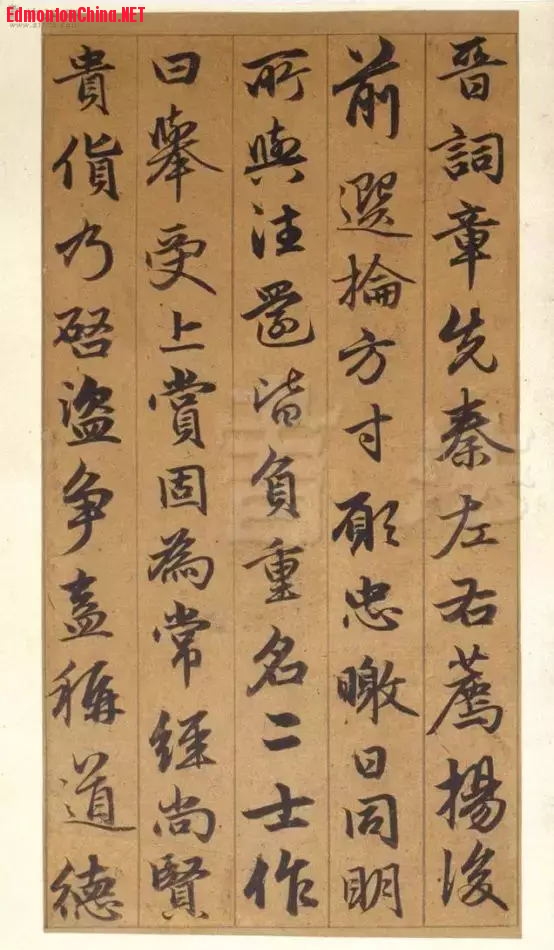 EdmontonChina.NET
晉詞章先秦左右薦揚後
前選掄方寸願忠暾日同明
所與注還皆負重名二士作
曰舉受上賞固為常經尚賢
貴貨乃啓盜争盍稱道德